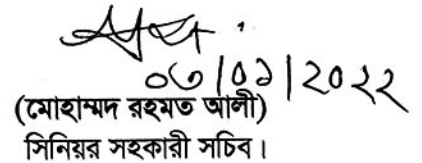 ০৩/০১/2022
(মোহাম্মদ রহমত আলী)
সিনিয়র সহকারী সচিব।